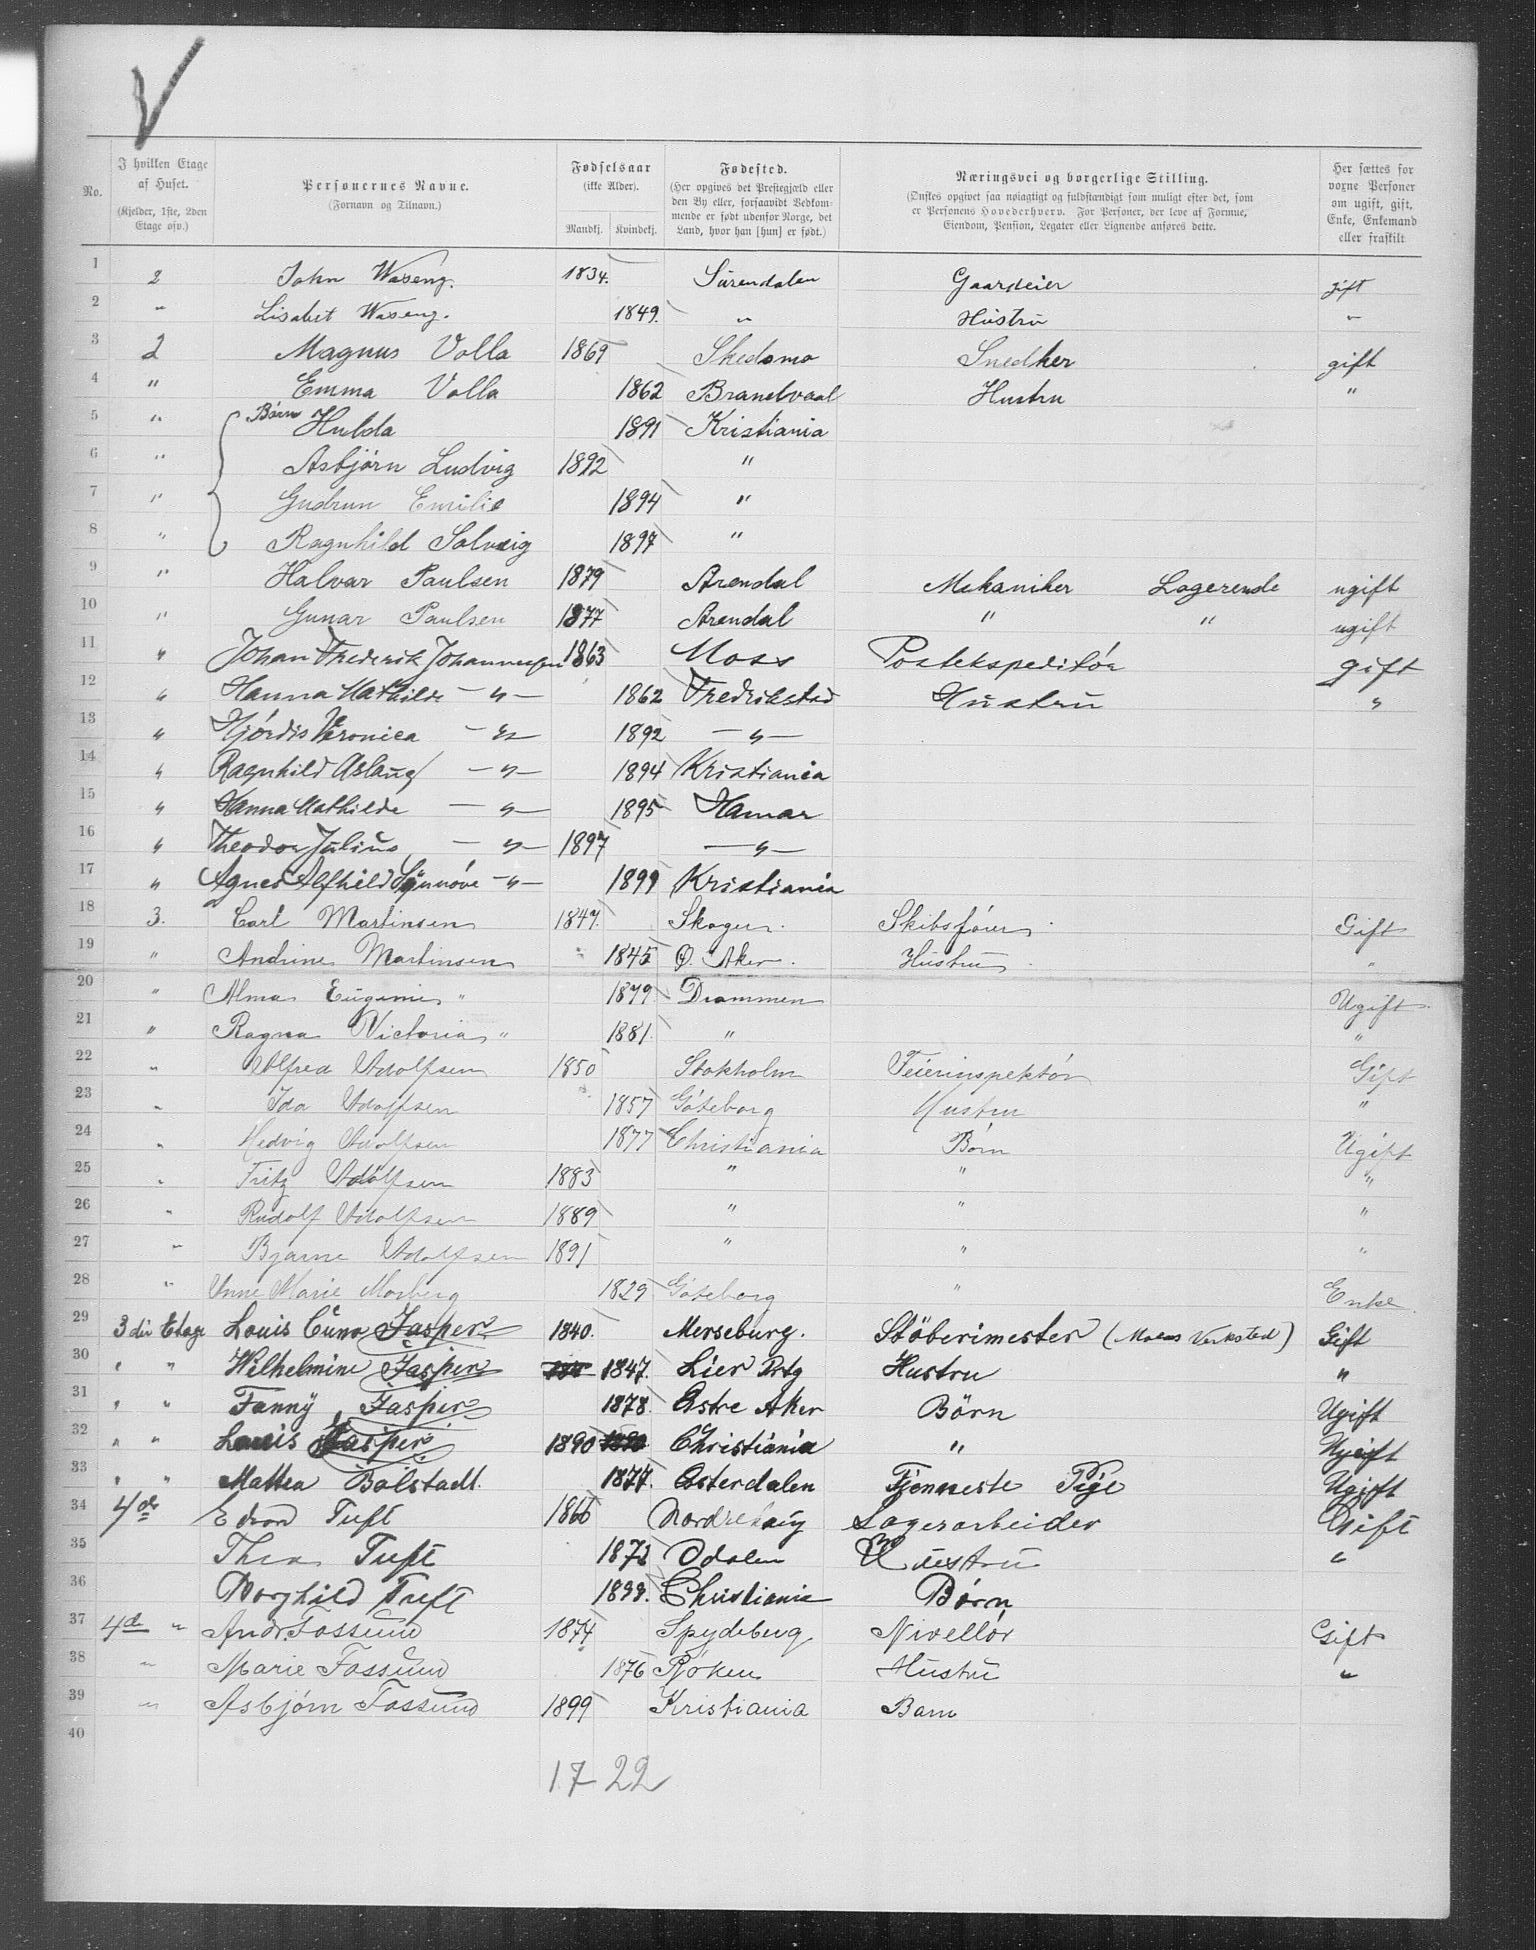 V
No. | I hvilken Etage af Huset. (Kjelder, 1ste, 2den Etage osv.) | Personernes Navne. (Fornavn og Tilnavn.) | Fødselsaar (ikke Alder). Mandkj. Kvindekj. | Fødested. (Her opgives det Prestegjæld eller den By eller, forsaavidt Vedkommende er født udenfor Norge, det Land, hvor han [hun] er født.) | Næringsvei og borgerlige Stilling. (Ønskes opgivet saa nøiagtigt og fuldstændigt som muligt efter det, som er Personens Hovederhverv. For Personer, der leve af Formue, Eiendom, Pension, Legater eller Lignende anføres dette. | Her sættes for voxne Personer om ugift, gift, Enke, Enkemand eller fraskilt
1 2 John Waseng. 1834. Surendalen Gaardeier gift
2 " Lisabet Waseng. 1849. " Hustru "
3 2 Magnus Volla 1869 Skedsmo Snedker gift
4 " Emma Volla 1862 Brandvaal Hustru "
5 " Børn Hulda 1891 Kristiania
6 " Asbjørn Ludvig 1892 "
7 " Gudrun Emilie 1894 "
8 " Ragnhild Solveig 1897 "
9 " Halvar Paulsen 1879 Arendal Mekaniker Logerende ugift
10 " Gunar Paulsen 1877 Arendal " " ugift
11 " Johan Frederik Johannessen 1863 Moss Postekspeditór gift
12 " Hanna Mathilde — " — 1862 Fredrikstad Hustru "
13 " Hjórdis Veronica — " — 1892 — " —
14 " Ragnhild Aslaug — " — 1894 Kristiania
15 " Hanna Mathilde — " — 1895 Hamar
16 " Theodor Julius — " — 1897 — " —
17 " Agnes Alfhild Synnóve — " — 1899 Kristiania
18 3. Carl Martinsen 1847. Skoger. Skibsfórer Gift
19 " Andrine Martinsen 1845 Ø. Aker. Hustru. "
20 " Alma Eugenie " 1879 Drammen Ugift.
21 " Ragna Victoria " 1881. " "
22 " Alfred Adolfsen 1850 Stokholm Feierinspektór Gift
23 " Ida Adolfsen 1857 Góteborg Hustru "
24 " Hedvig Adolfsen 1877 Christiania Børn Ugift
25 " Fritz Adolfsen 1883 " " "
26 " Rudolf Adolfsen 1889 " " "
27 " Bjarne Adolfsen 1891 " " "
28 " Anne Marie Morberg 1829 Góteborg " Enke.
29 3die Etage Louis Cuno Jasper 1840. Merseburg. Stöberimester (Myrens Verksted) Gift
30 " " Wilhelmine Jasper 1847. Lier Prtg Hustru "
31 " " Fanny Jasper 1878. Østre Aker Börn Ugift
32 " " Louis Jasper 1890 Christiania " Ugift
33 " " Mathea Bolstadt. 1877. Østerdalen Tjenneste Pige Ugift
34 4de Edvard Tuft 1866 Nordrehaug Lagerarbeider Gift
35 Thea Tuft 1872 Odalen Hustru "
36 Borghild Tuft 1899. Christiania Börn
37 4de " Andr. Fossund 1874 Spydeberg Nivellór Gift
38 " Marie Fossund 1876 Róken Hustru "
39 " Asbjórn Fossund 1899 Kristiania Barn
40
17 - 22